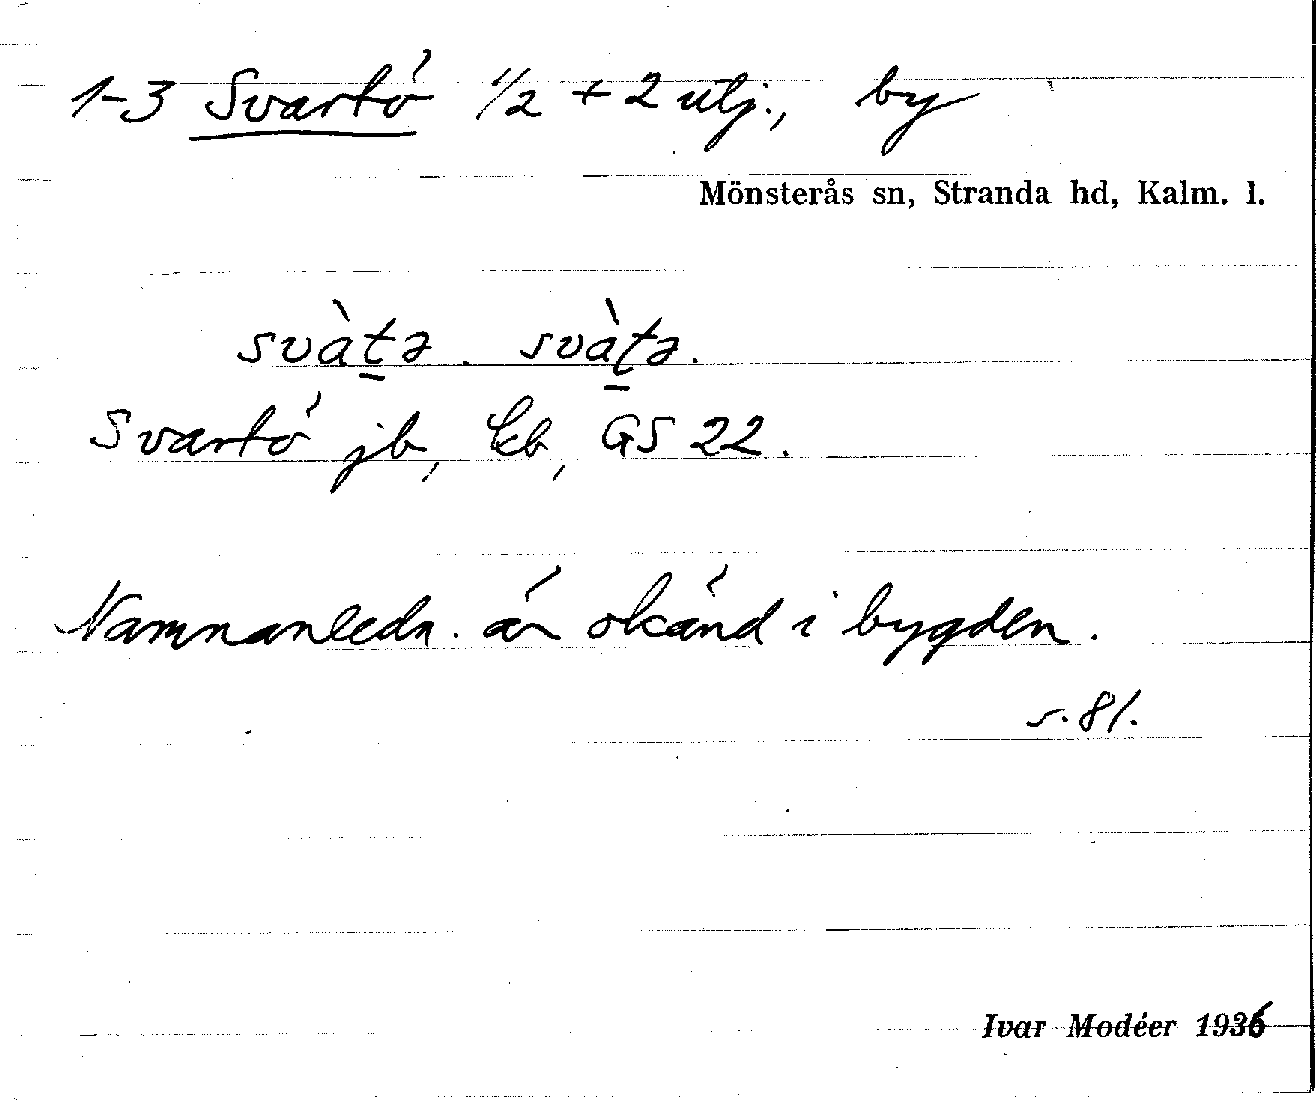 1-3 Svartö 1/2 + 2 utj., by
Mönsterås sn, Stranda hd, Kalm. l.
svàt̠ə. svàt̠ə.
Svartö jb, kb, GS 22.
Namnanledn. är okänd i bygden.
s. 81.
Ivar Modéer 1936